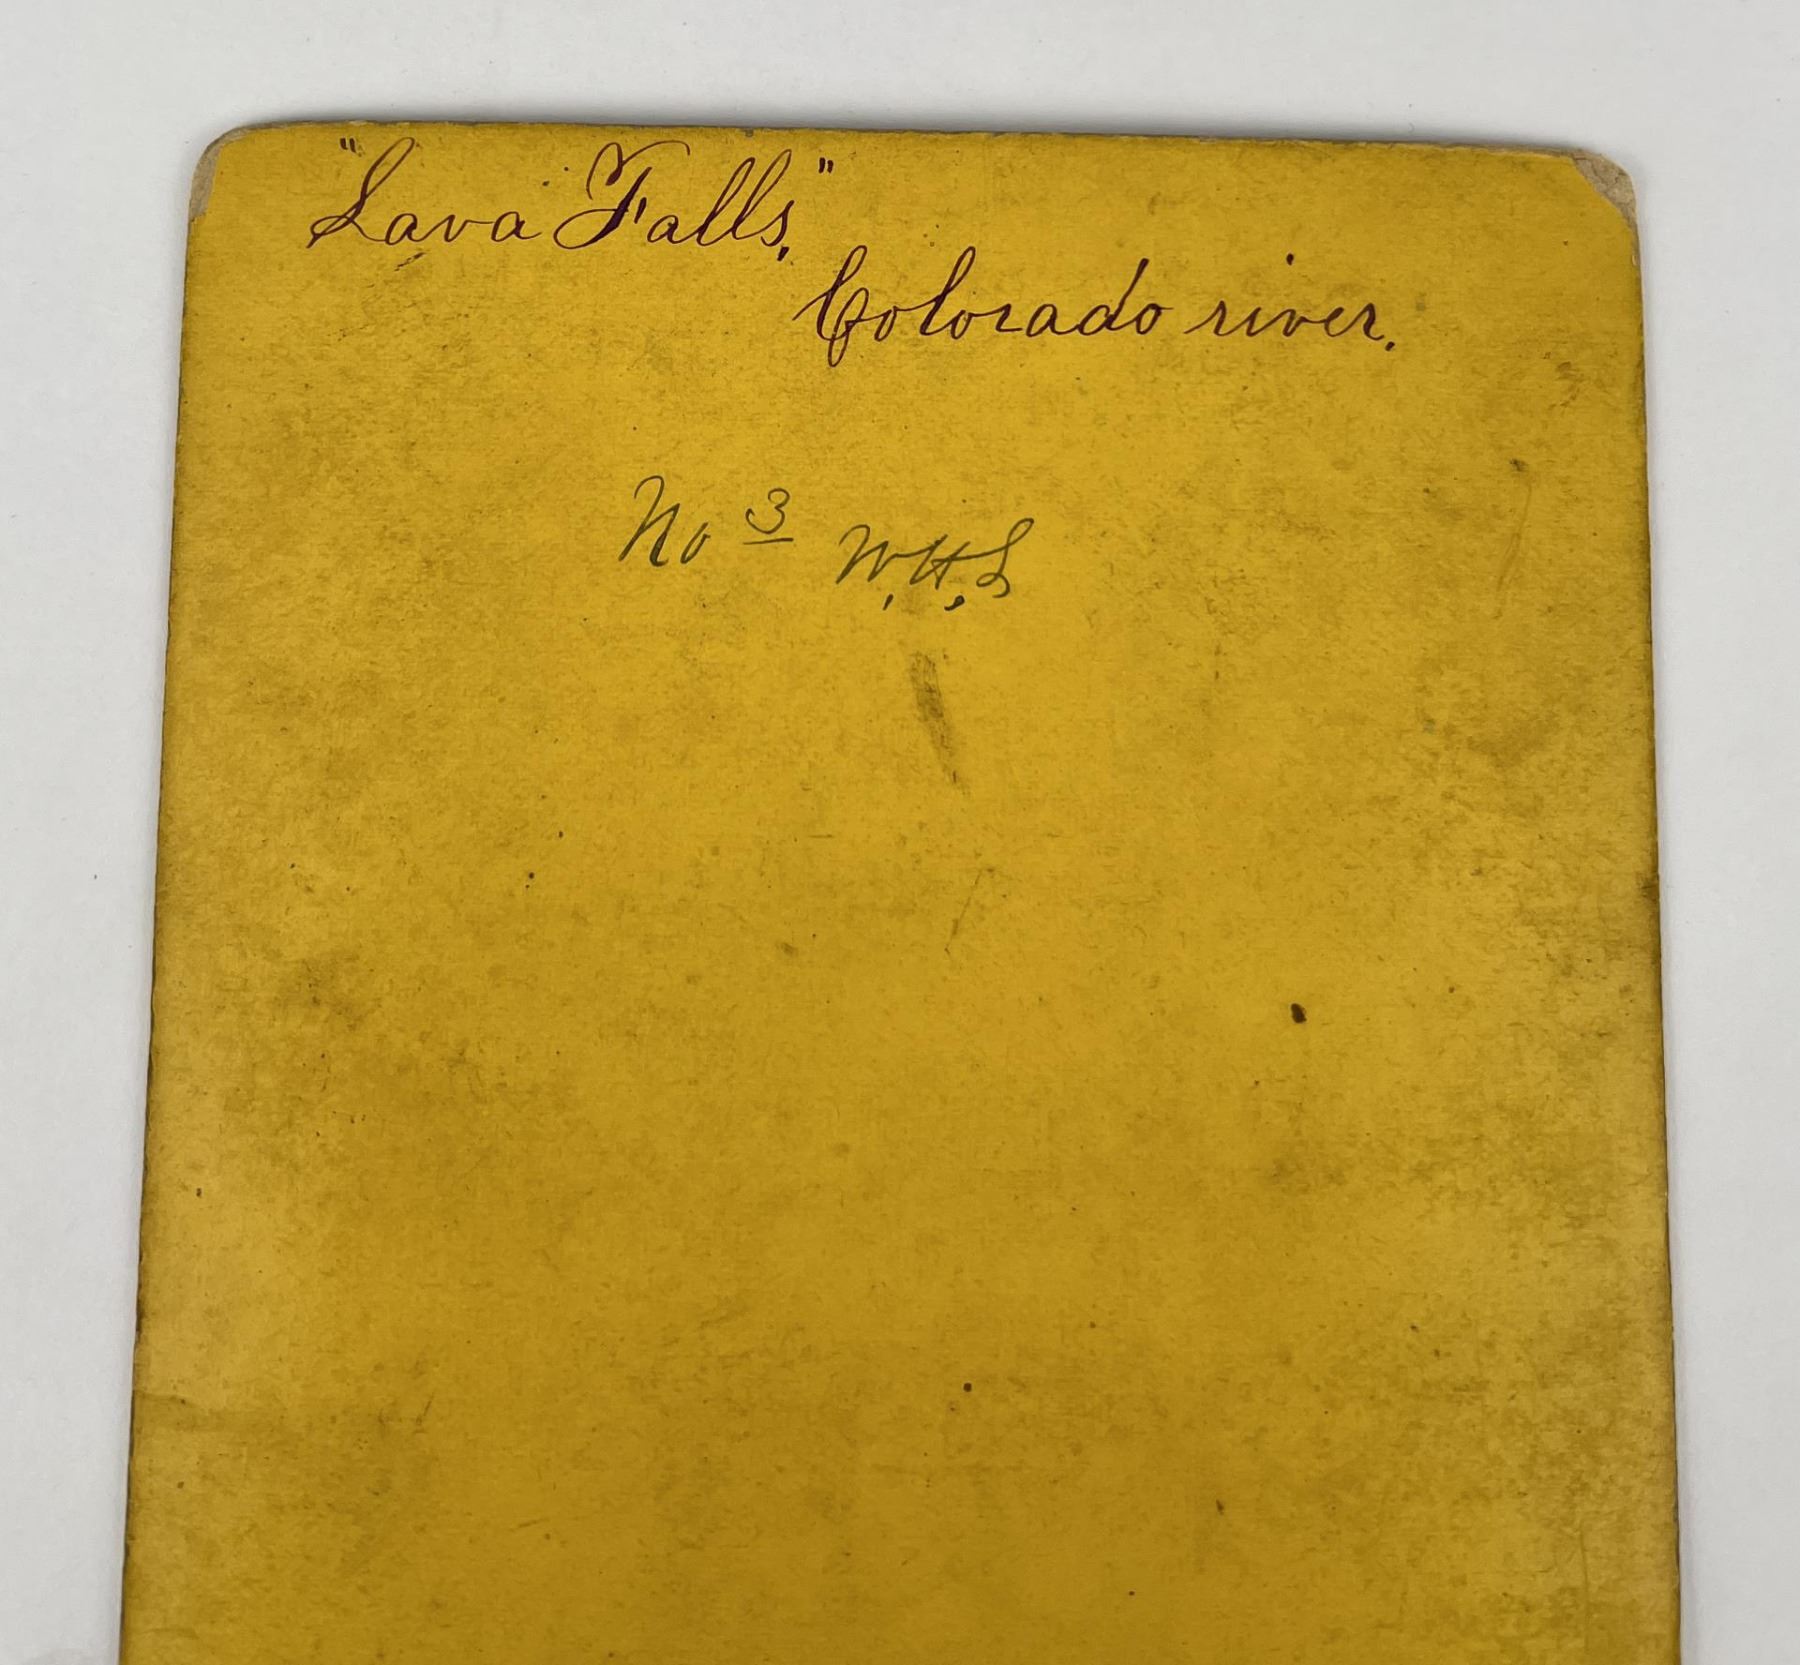 "Lava Falls,"
Colorado river.
No 3 W.H.L